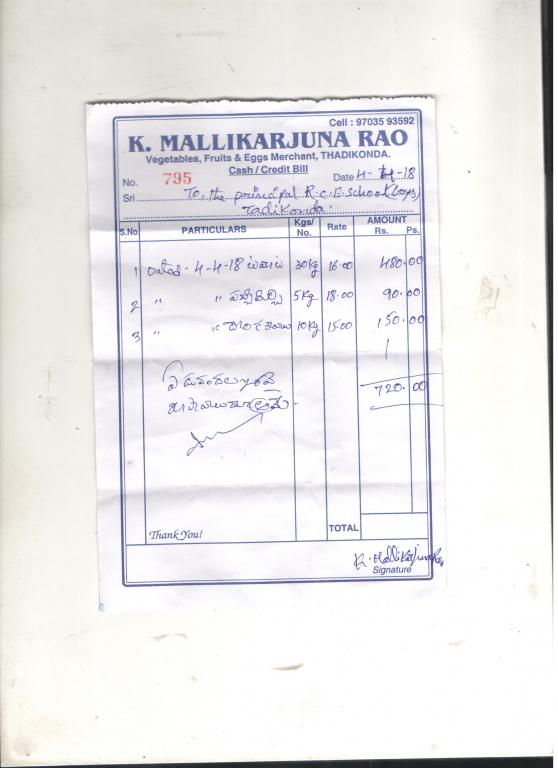 Cell : 97035 93592
K. MALLIKARJUNA RAO
Vegetables, Fruits & Eggs Merchant, THADIKONDA.
Cash / Credit Bill
No. 795 Date 4-4-18
Sri To, the principal R.C.E. School (boys)
Tadikonda.
S.No. PARTICULARS Kgs/No. Rate AMOUNT Rs. Ps.
1 Dated - 4-4-18 30Kg 16.00 480.00
2 " " పచ్చిమిర్చి 5Kg 18.00 90.00
3 " " 10Kg 15.00 150.00
720.00
Thank You! TOTAL
K. Mallikarjuna Rao
Signature